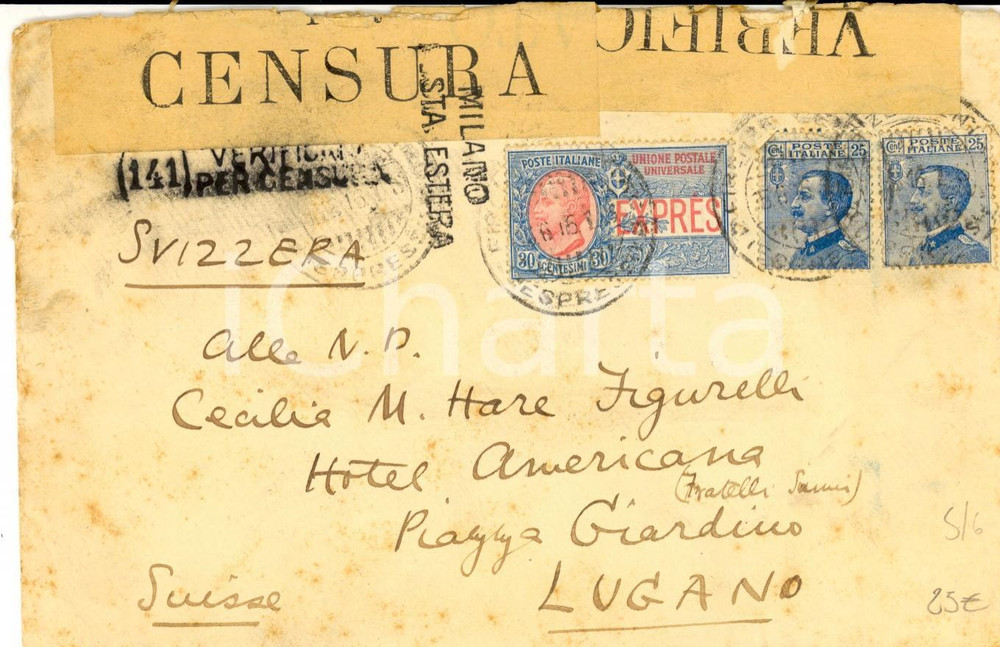 CENSURA
VERIFIC
(141) VERIFICATO
PER CENSURA
MILANO
POSTA ESTERA
POSTE ITALIANE
UNIONE POSTALE
UNIVERSALE
EXPRES
30 CENTESIMI 30
POSTE
ITALIANE
25
POSTE
ITALIANE
25
SVIZZERA
iCharta
Alla N. D.
Cecilia M. Hare Figurelli
Hotel Americana
(Fratelli
Piazza Giardino
LUGANO
Suisse
5/6
25€